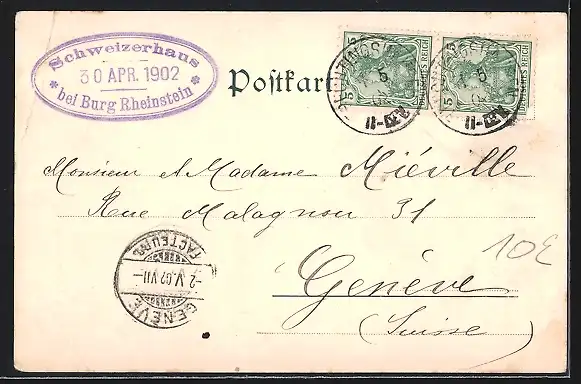 Schweizerhaus
* 30 APR. 1902 *
bei Burg Rheinstein
Postkar
5
DEUTSCHES REICH
5
DEUTSCHES REICH
Monsieur et Madame Miéville
Rue Malagnou 31
Genève
(Suisse)
10€
FACTEURS
-2.V.02.VII-
GENÈVE